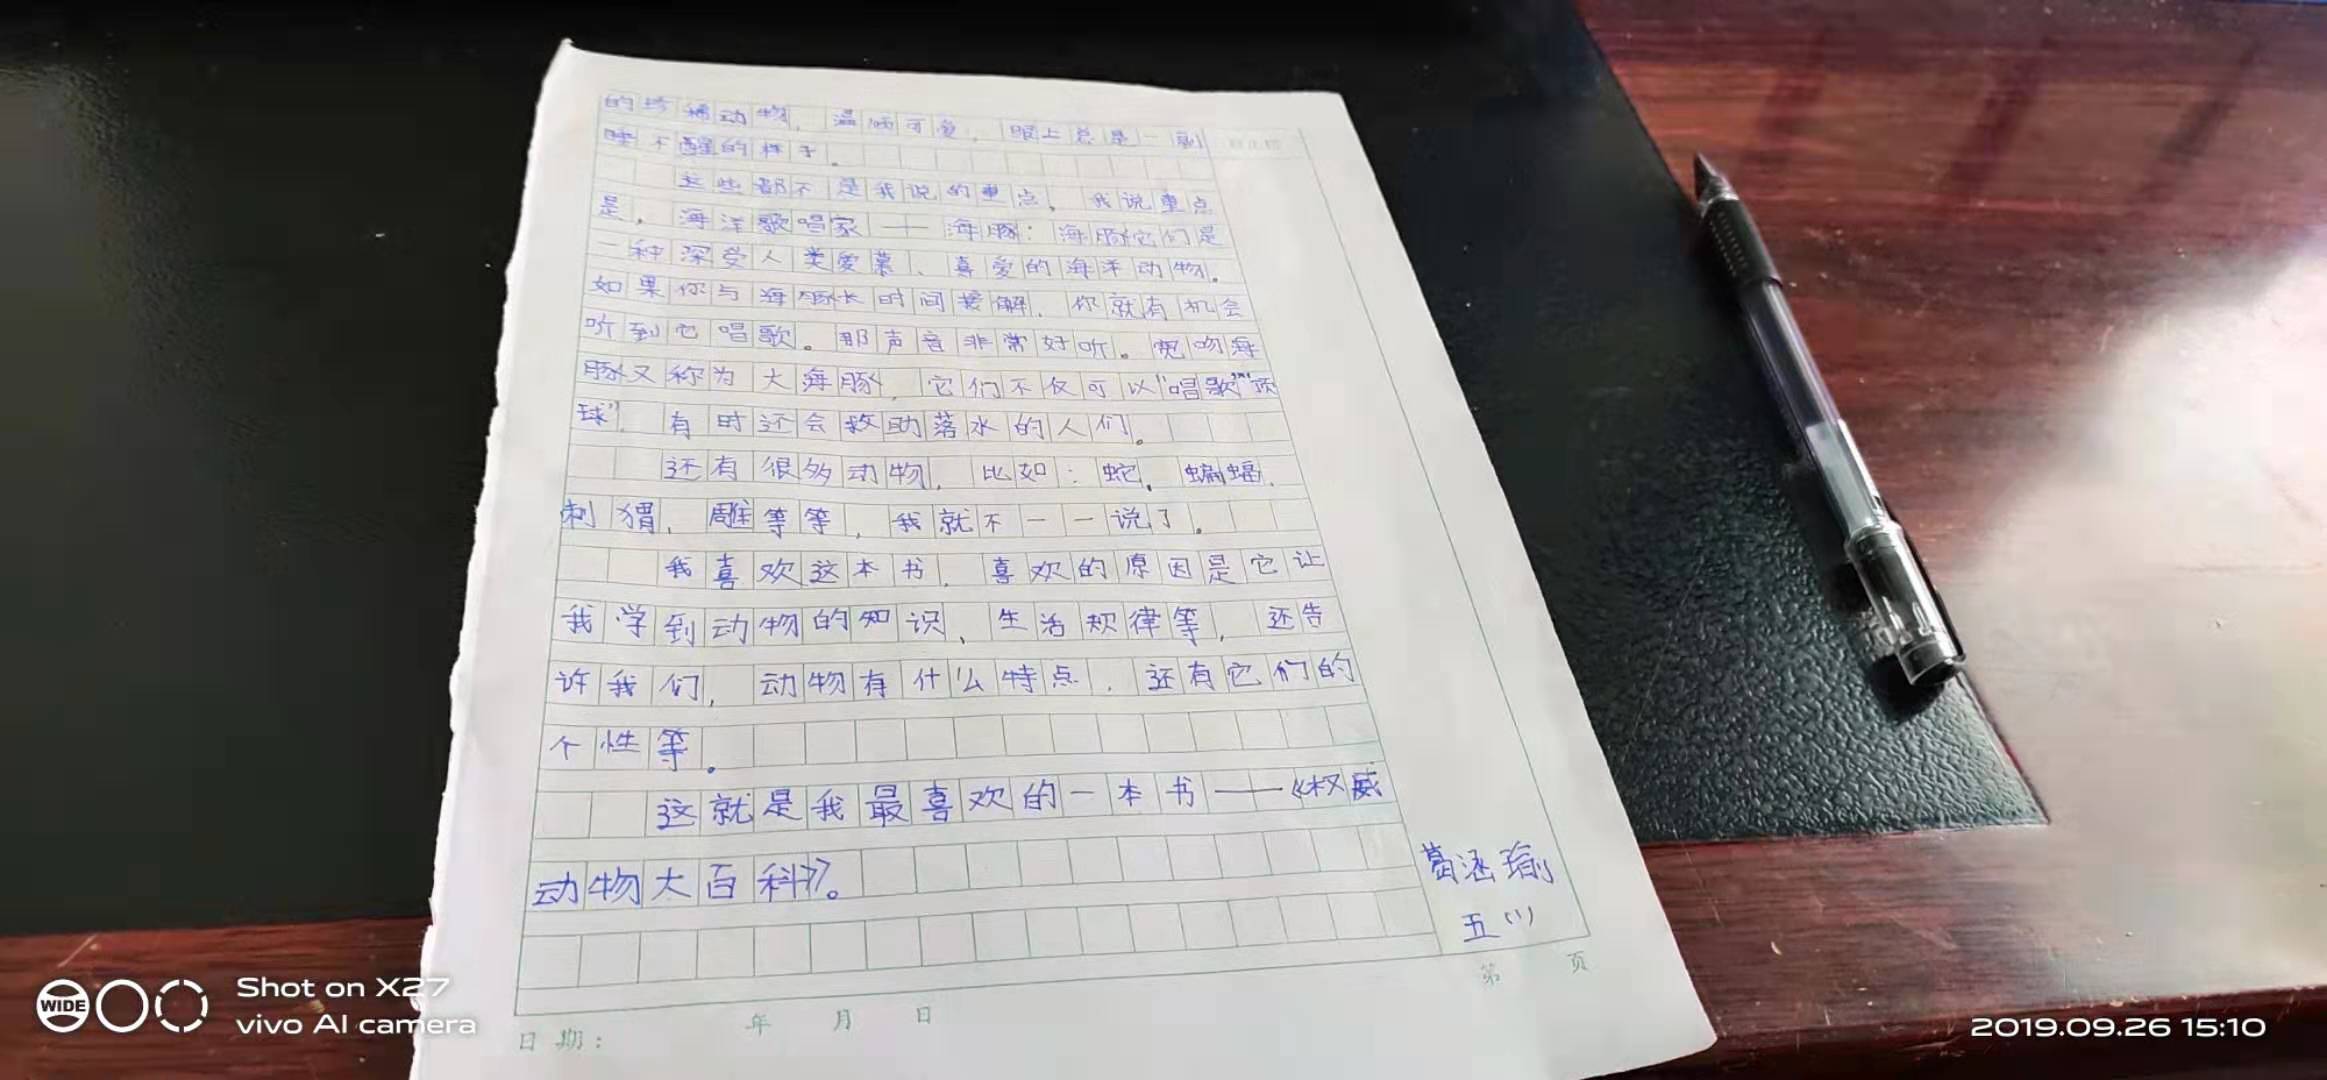 的珍稀动物，温顺可爱，眼上总是一副
睡不醒的样子。
这些都不是我说的重点，我说重点
是，海洋歌唱家——海豚：海豚它们是
一种深受人类爱慕、喜爱的海洋动物。
如果你与海豚长时间接解，你就有机会
听到它唱歌。那声音非常好听。宽吻海
豚又称为大海豚，它们不仅可以“唱歌”“顶
球”，有时还会救助落水的人们。
还有很多动物，比如：蛇，蝙蝠，
刺猬，雕等等，我就不一一说了。
我喜欢这本书，喜欢的原因是它让
我学到动物的知识、生活规律等，还告
许我们，动物有什么特点，还有它们的
个性等。
这就是我最喜欢的一本书——《权威
动物大百科》。
葛涵瑜
五(1)
第 页
日期： 年 月 日
WIDE
Shot on X27
vivo AI camera
2019.09.26 15:10